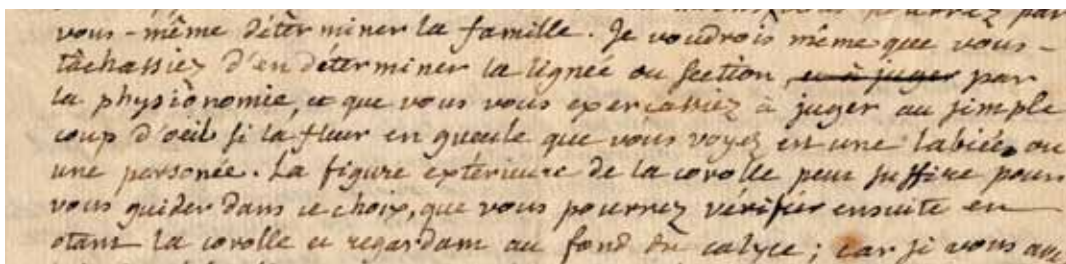 pourrez par
vous-même détèrminer la famille. Je voudrois même que vous
tâchassiez d'en détèrminer la lignée ou section et à juger par
la physionomie, et que vous vous exerçassiez à juger au simple
coup d'oeil si la fleur en gueule que vous voyez est une labiée, ou
une personée. La figure extèrieure de la corolle peut suffire pour
vous guider dans ce choix, que vous pourrez vérifier ensuite en
otant la corolle et regardant au fond du calyce; car si vous avez